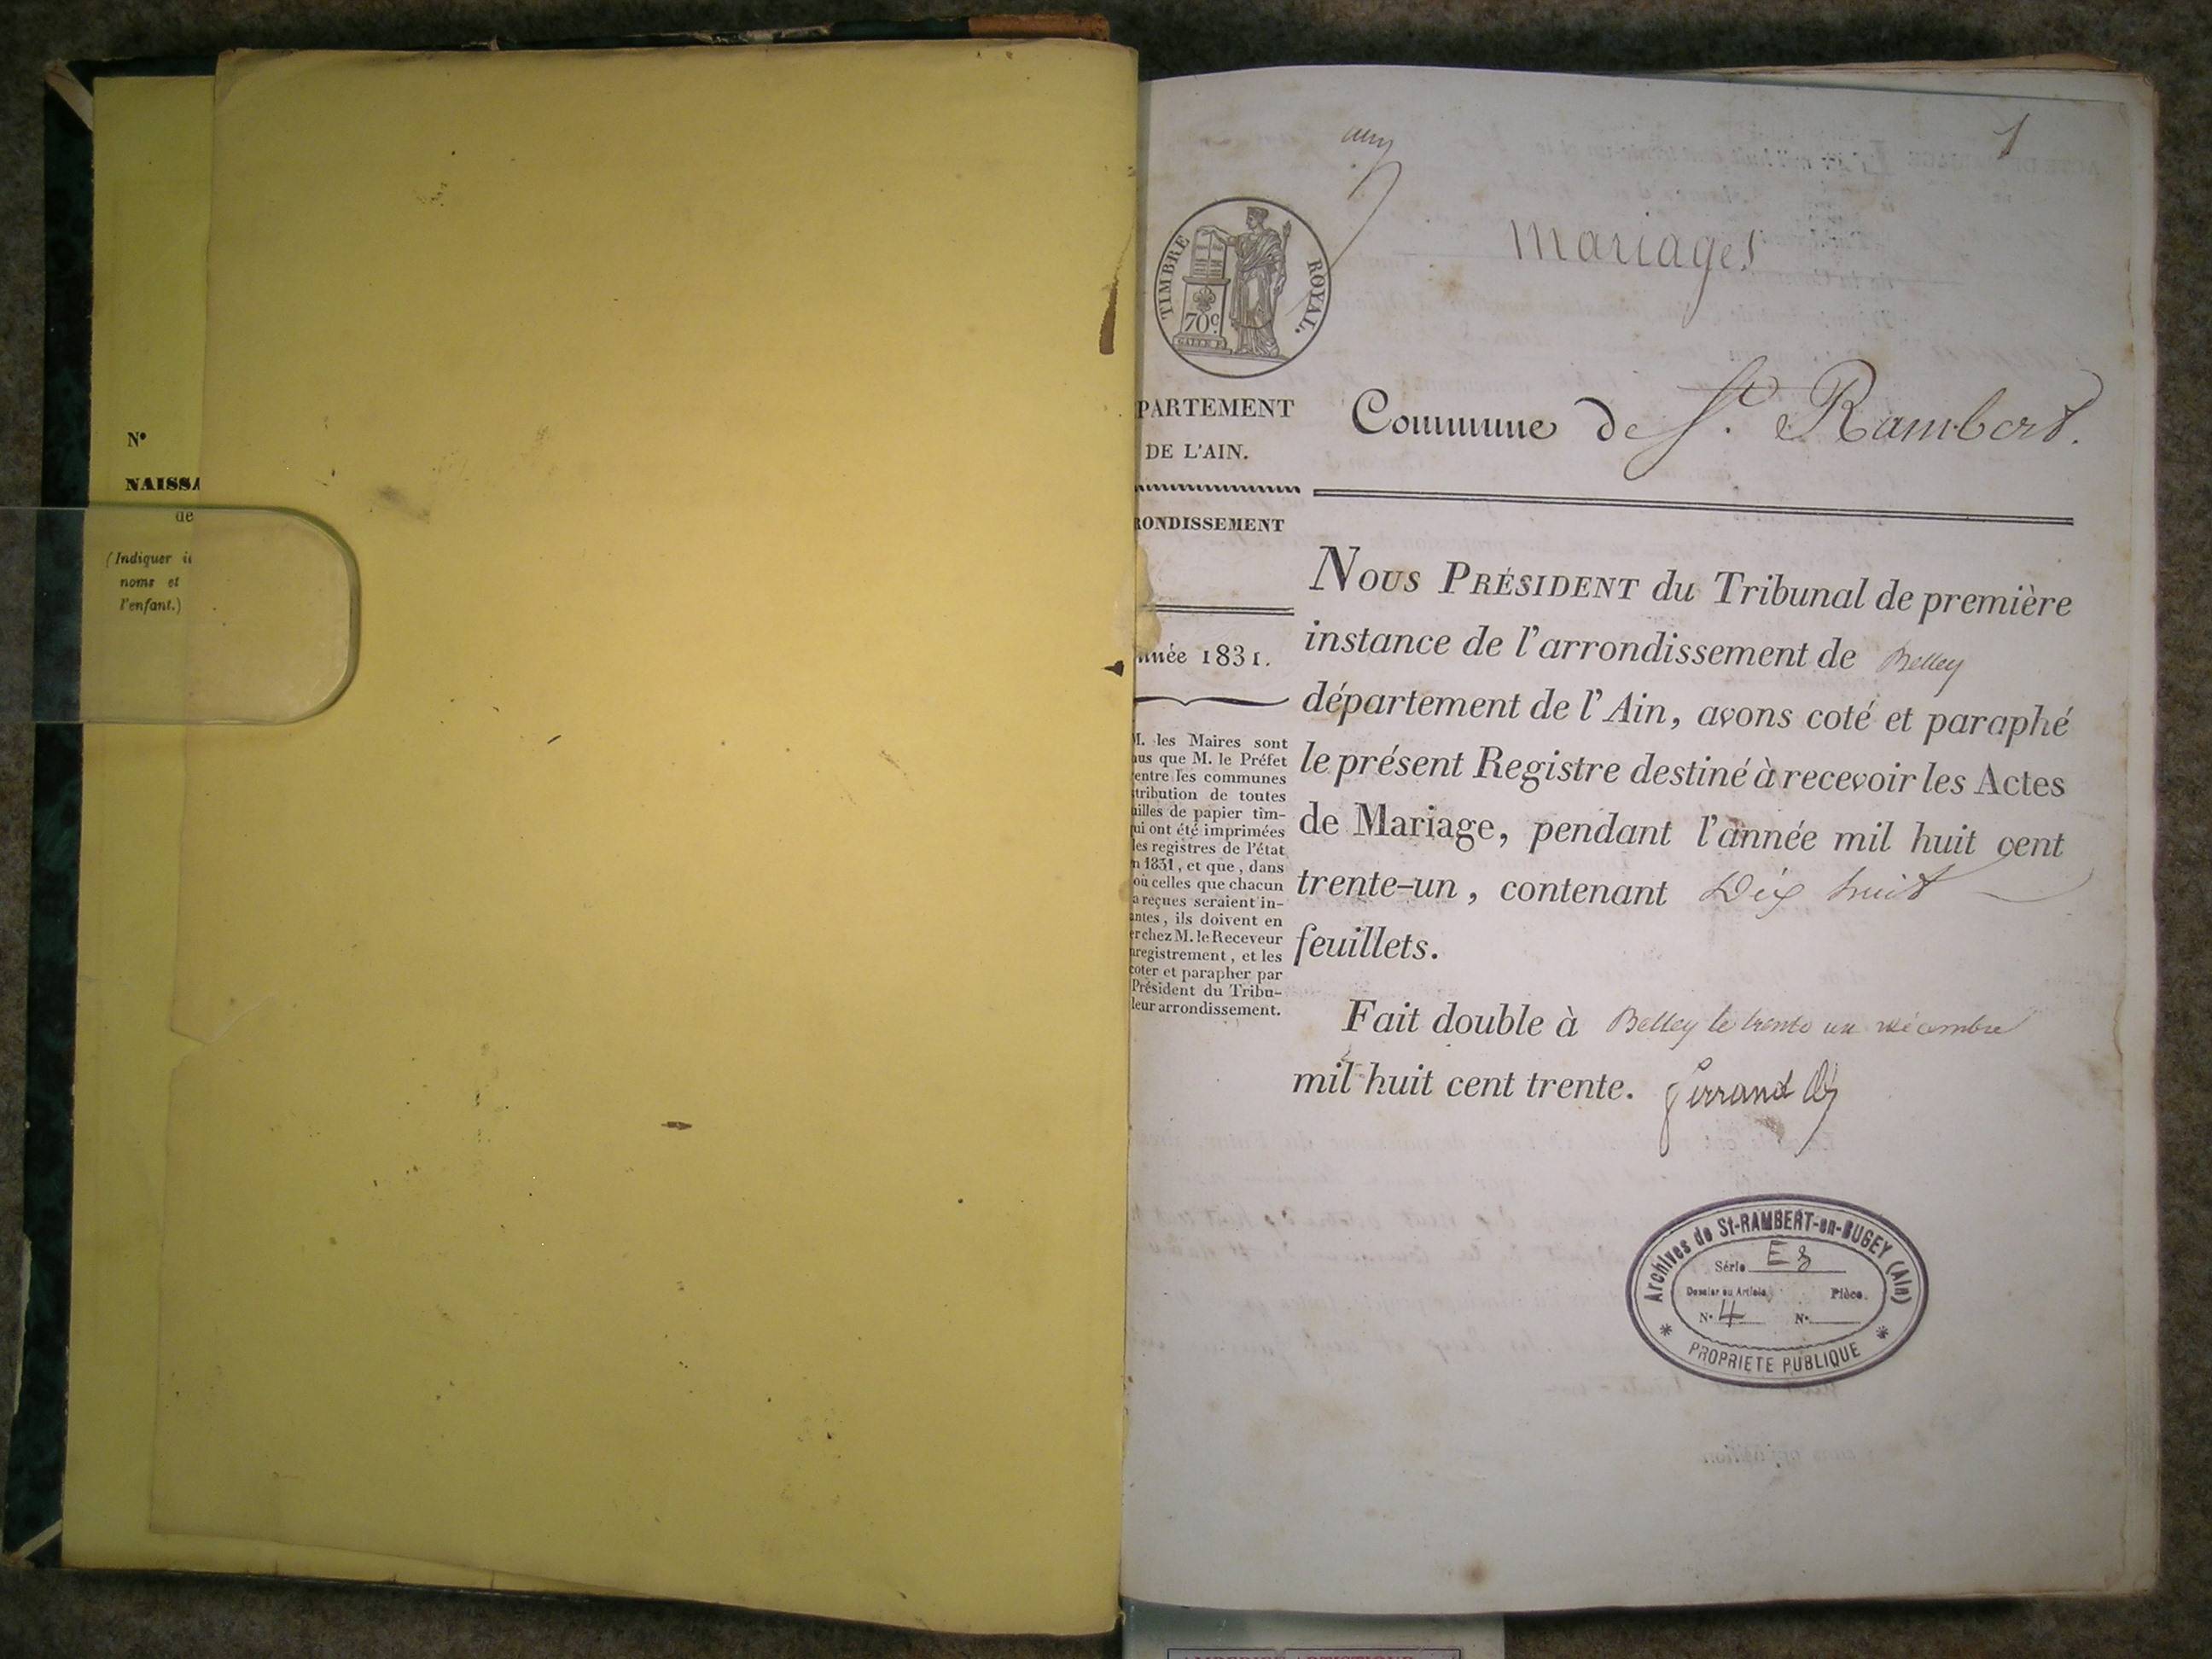 N°
NAISSA
de
(Indiquer
noms et
l'enfant.)
1
TIMBRE ROYAL.
70c.
mariages
PARTEMENT
DE L'AIN.
Commune de St. Rambert.
RONDISSEMENT
nnée 1831.
M. les Maires sont
us que M. le Préfet
entre les communes
tribution de toutes
illes de papier tim-
ui ont été imprimées
les registres de l'état
n 1831, et que, dans
où celles que chacun
a reçues seraient in-
antes, ils doivent en
er chez M. le Receveur
nregistrement, et les
coter et parapher par
Président du Tribu-
leur arrondissement.
Nous PRÉSIDENT du Tribunal de première
instance de l'arrondissement de Belley
département de l'Ain, avons coté et paraphé
le présent Registre destiné à recevoir les Actes
de Mariage, pendant l'année mil huit cent
trente-un, contenant Dix huit
feuillets.
Fait double à Belley le trente un décembre
mil huit cent trente.
Archives de St-RAMBERT-en-BUGEY (Ain)
Série E 8
Dossier ou Article Pièce.
N° 4 N°
* PROPRIETE PUBLIQUE *